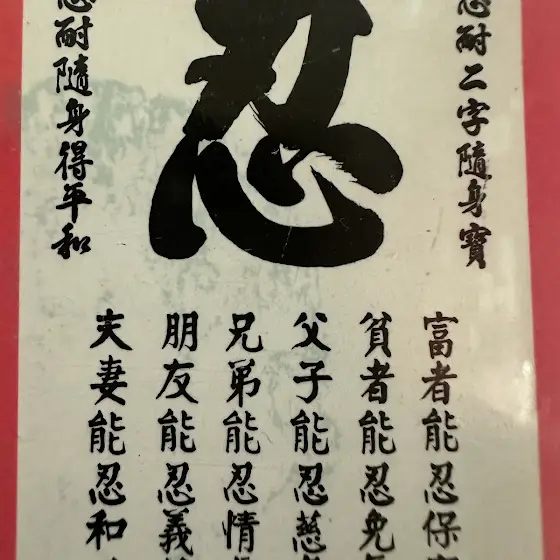 忍耐二字隨身寶
忍
忍耐隨身得平和
富者能忍保
貧者能忍免
父子能忍慈
兄弟能忍情
朋友能忍義
夫妻能忍和